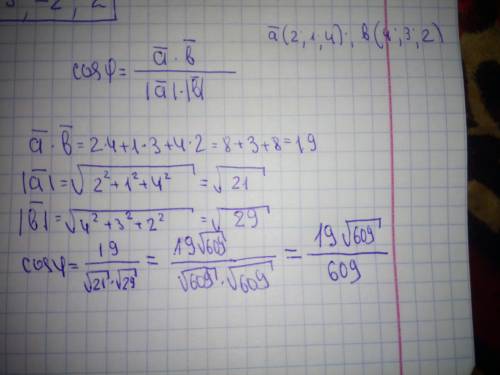 5, -2, 2
a̅(2,1,4); b(4;3;2)
cosφ = (a̅ · b̅) / (|a̅|·|b̅|)
a̅ · b̅ = 2·4+1·3+4·2 = 8+3+8 = 19
|a̅| = √(2²+1²+4²) = √21
|b̅| = √(4²+3²+2²) = √29
cosφ = 19/(√21·√29) = 19√609/(√609·√609) = 19√609/609